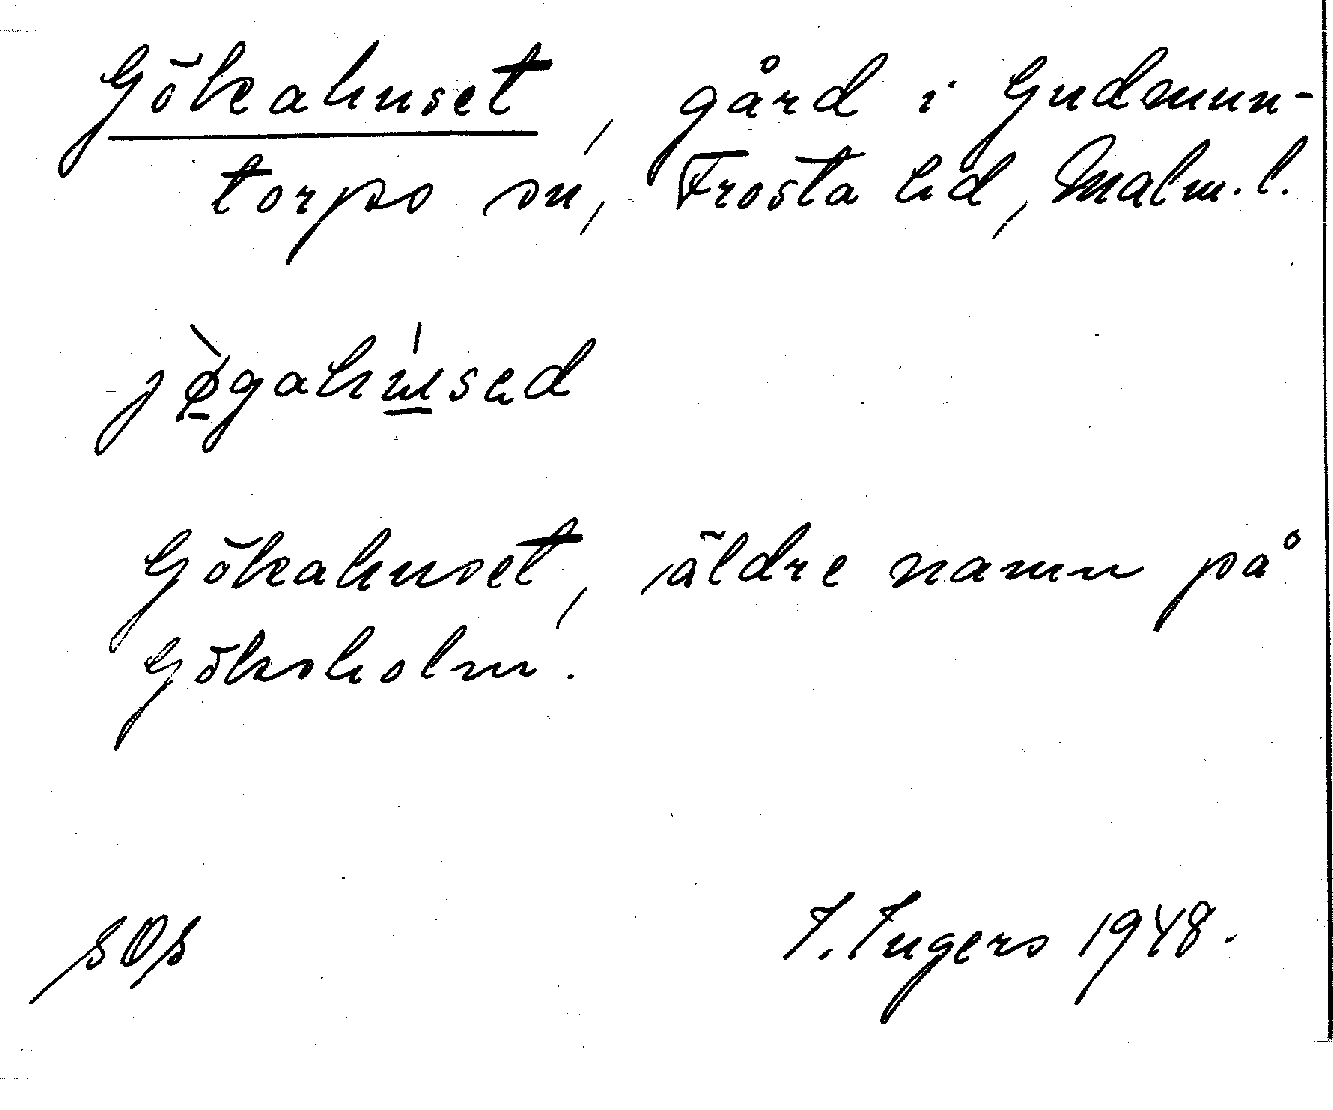 Gökahuset, gård i Gudmun-
torps sn, Frosta hd, Malm. l.
jø̀gahúsed
Gökahuset, äldre namn på
Göksholm.
sOs
I. Ingers 1948.